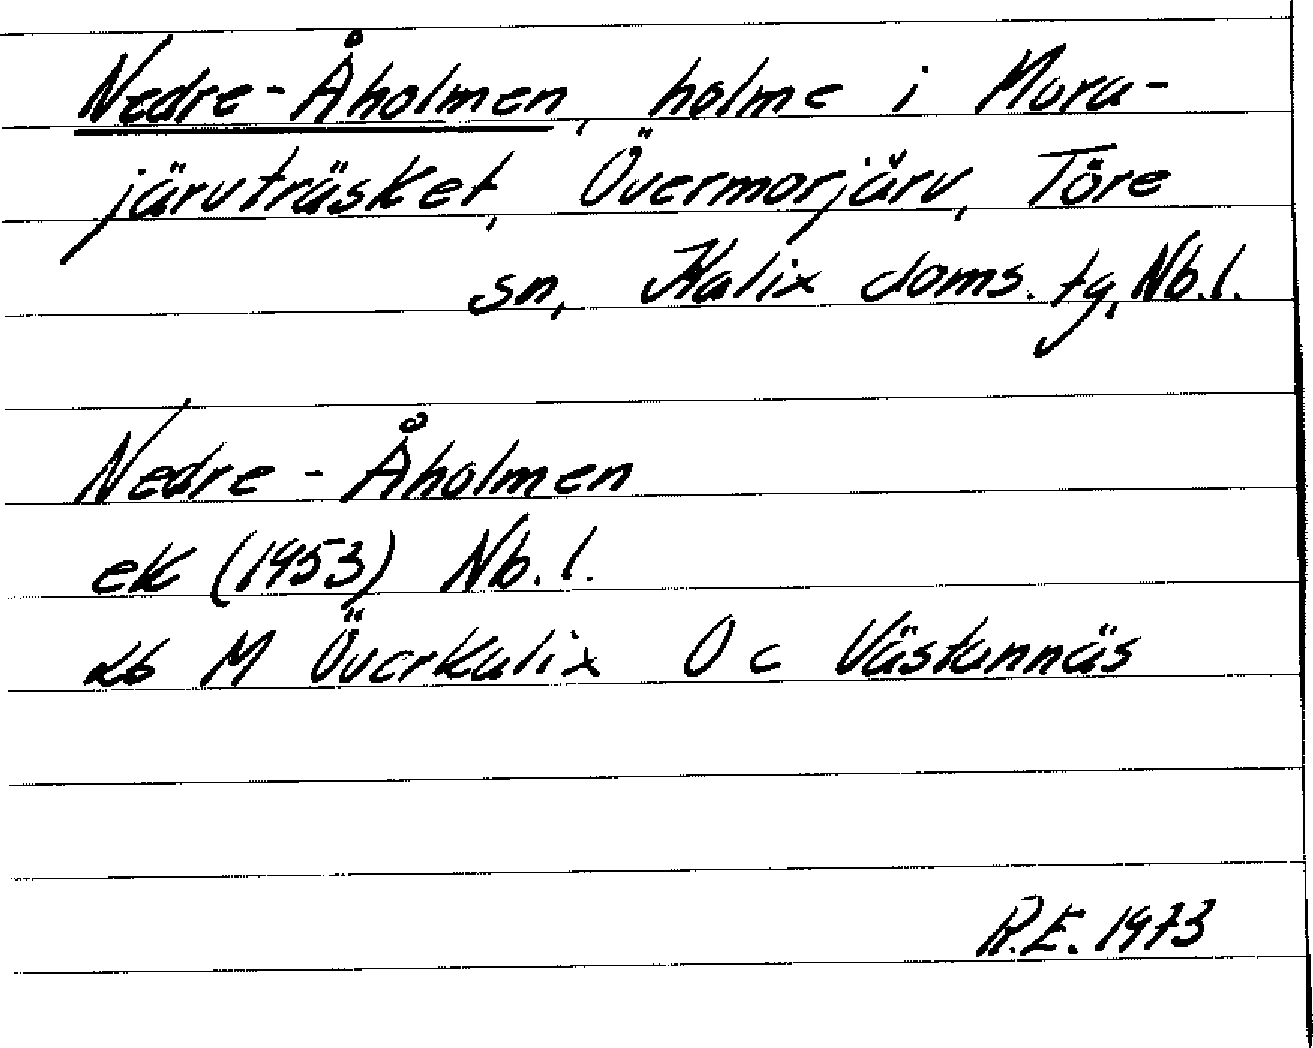 Nedre-Åholmen, holme i Mora-
järvträsket, Övermorjärv, Töre
sn, Kalix doms. tg, Nb.l.
Nedre-Åholmen
ek (1953) Nb.l.
26 M Överkalix O c Västannäs
R.E. 1973